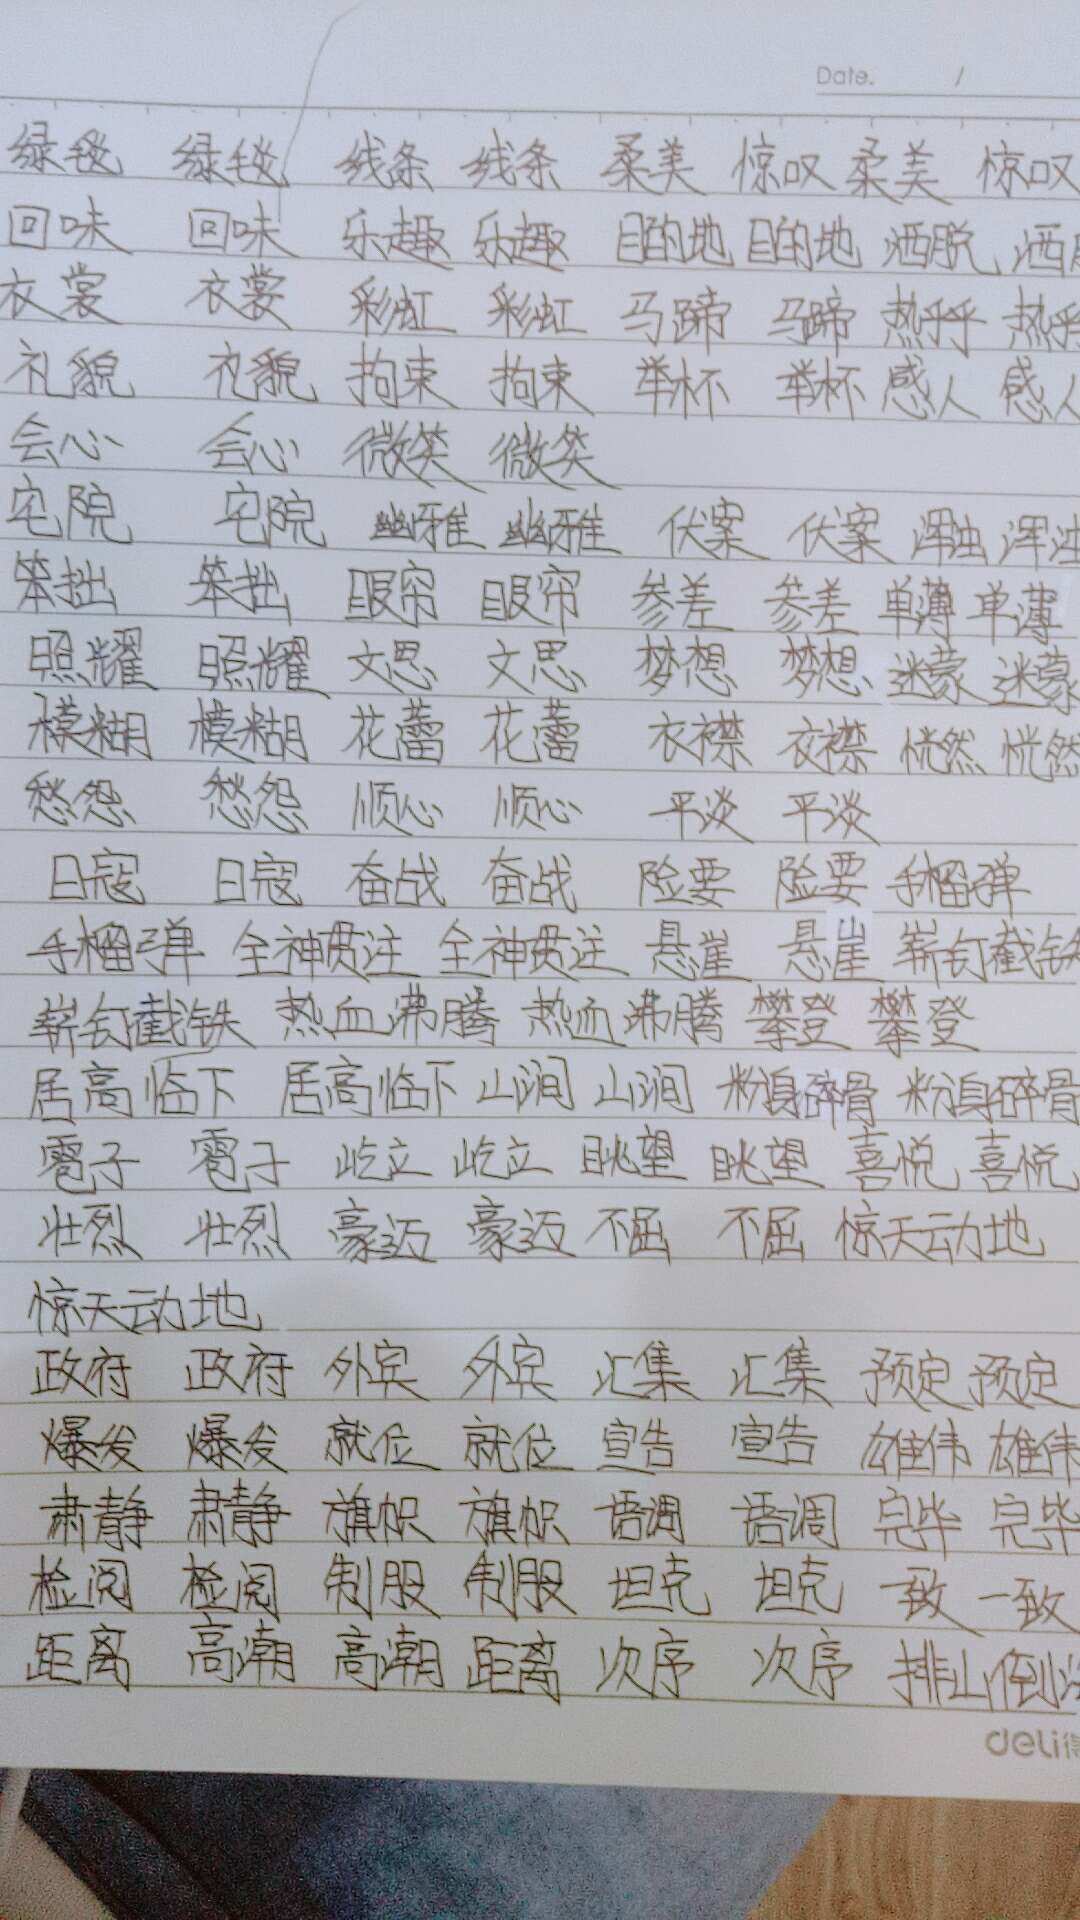 Date. /
绿毯 绿毯 线条 线条 柔美 惊叹 柔美 惊叹
回味 回味 乐趣 乐趣 目的地 目的地 洒脱 洒
衣裳 衣裳 彩虹 彩虹 马蹄 马蹄 热乎乎 热乎
礼貌 礼貌 拘束 拘束 举杯 举杯 感人 感人
会心 会心 微笑 微笑
宅院 宅院 幽雅 幽雅 伏案 伏案 浑浊 浑浊
笨拙 笨拙 眼帘 眼帘 参差 参差 单薄 单薄
照耀 照耀 文思 文思 梦想 梦想 迷蒙 迷蒙
模糊 模糊 花蕾 花蕾 衣襟 衣襟 恍然 恍然
愁怨 愁怨 顺心 顺心 平淡 平淡
日寇 日寇 奋战 奋战 险要 险要 手榴弹
手榴弹 全神贯注 全神贯注 悬崖 悬崖 斩钉截铁
斩钉截铁 热血沸腾 热血沸腾 攀登 攀登
居高临下 居高临下 山涧 山涧 粉身碎骨 粉身碎骨
雹子 雹子 屹立 屹立 眺望 眺望 喜悦 喜悦
壮烈 壮烈 豪迈 豪迈 不屈 不屈 惊天动地
惊天动地
政府 政府 外宾 外宾 汇集 汇集 预定 预定
爆发 爆发 就位 就位 宣告 宣告 雄伟 雄伟
肃静 肃静 旗帜 旗帜 语调 语调 完毕 完毕
检阅 检阅 制服 制服 坦克 坦克 一致 一致
距离 高潮 高潮 距离 次序 次序 排山倒
deli得